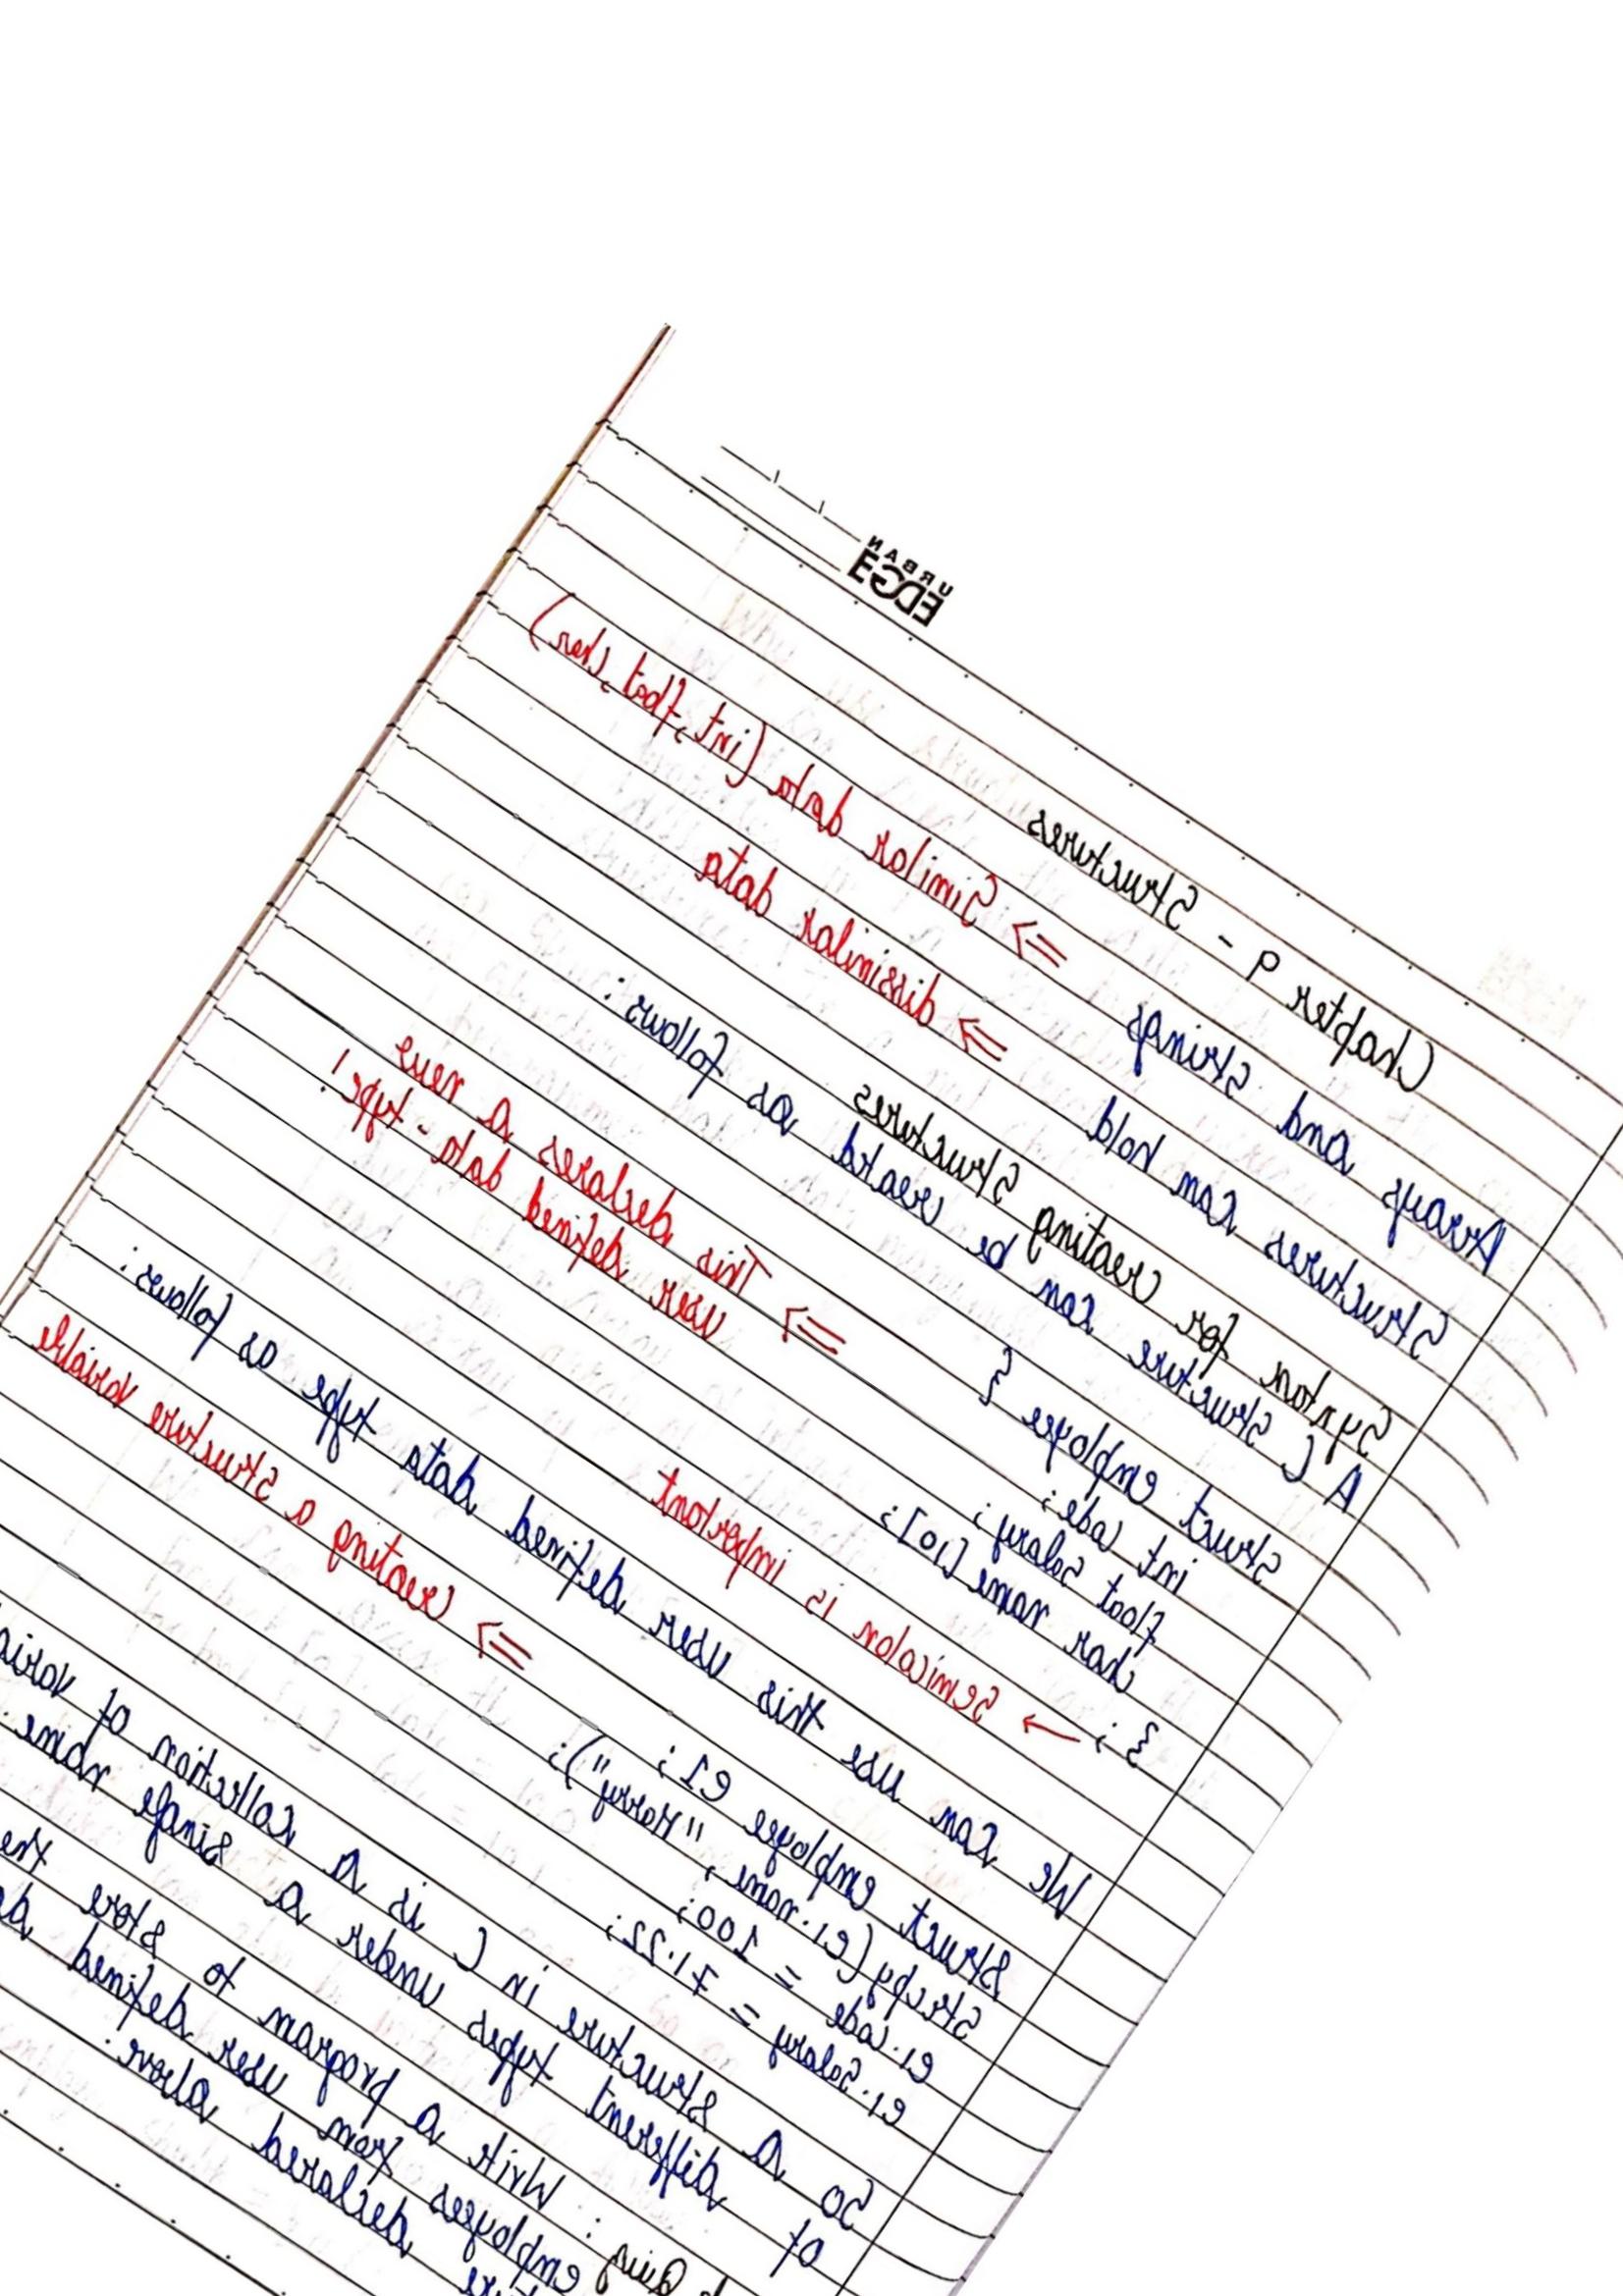 URBAN
EDGE
Chapter 9 - Structures
Arrays and Strings => Similar data (int, float, char)
Structures can hold => dissimilar data
Syntax for creating Structures
A C Structure can be created as follows:
Struct employee {
int code; => This declares a new
float salary; user defined data-type!
char name [10];
}; ← Semicolon is important
We can use this user defined data type as follows:
Struct employee e1; => creating a Structure variable
strcpy (e1.name, "Harry");
e1.code = 100;
e1.salary = 71.22;
So a structure in C is a collection of
of different types under a single name.
Quiz: Write a program to store the
employees from user defined
declared above.